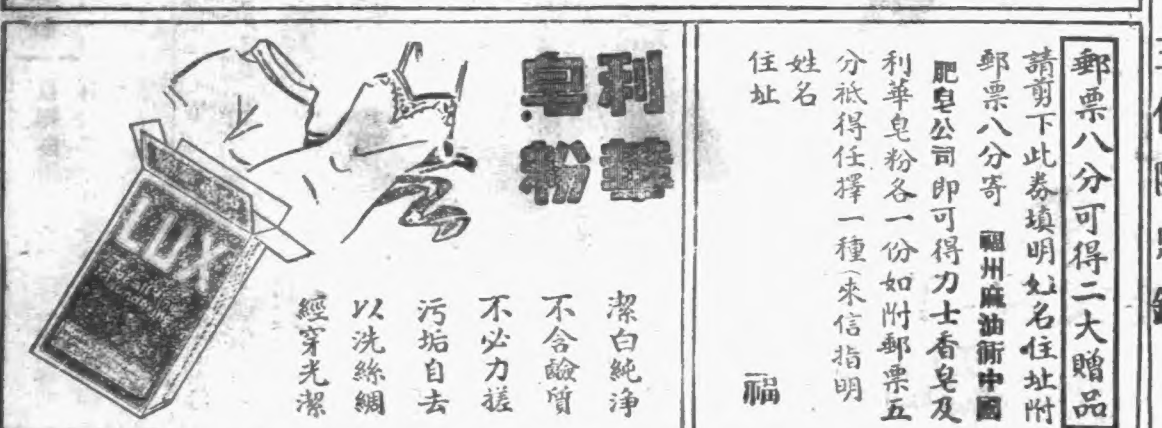 郵票八分可得二大贈品
請剪下此券填明姓名住址附
郵票八分寄 福州麻油街中國
肥皂公司即可得力士香皂及
利華皂粉各一份如附郵票五
分祇得任擇一種(來信指明
姓名
住址
福
利華
皂粉
潔白純淨
不含鹼質
不必力搓
污垢自去
以洗絲綢
經穿光潔
LUX